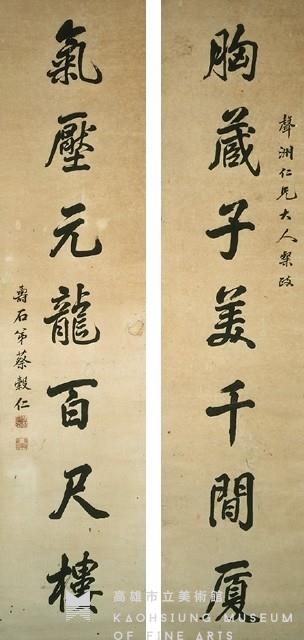 聲洲仁兄大人粲政
胸藏子美千間厦
氣壓元龍百尺樓
壽石弟蔡穀仁
高雄市立美術館
KAOHSIUNG MUSEUM
OF FINE ARTS